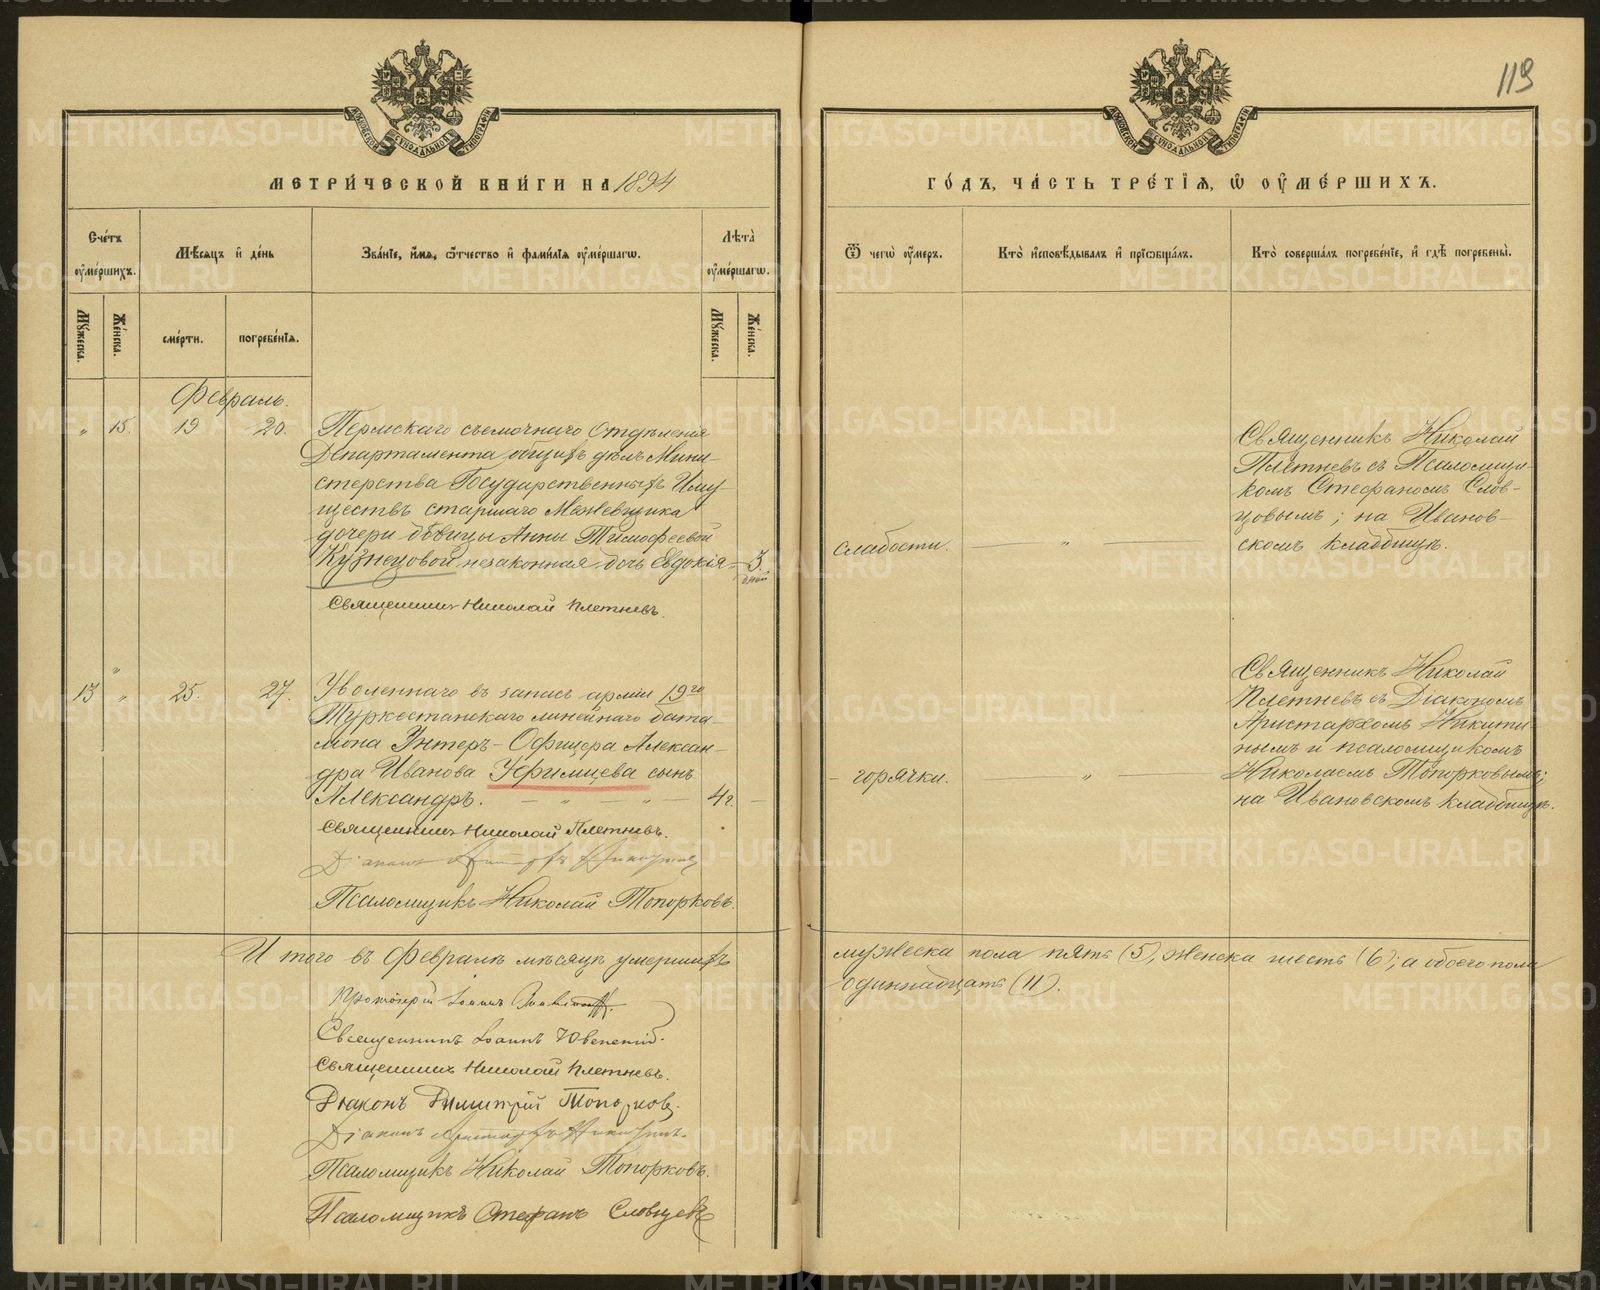 119
МЕТРИ́ЧЕСКОЙ КНИ́ГИ НА 1894
ГО́ДЪ, ЧА́СТЬ ТРЕ́ТІѦ, Ѿ ОУ҆МЕ́РШИХЪ.
Счетъ оумершихъ.
Мѣсѧцъ и день
Званіе, имѧ, отчество и фамиліѧ оумершагѡ.
Лѣта оумершагѡ.
Ѿ чегѡ оумеръ.
Кто исповѣдывалъ и пріѡбщалъ.
Кто совершалъ погребеніе, и гдѣ погребены.
Мужеска.
Женска.
смерти.
погребеніѧ.
Мужеска.
Женска.
Февраль.
„ 15. 19 20.
Пермскаго съемочнаго Отдѣленія
Департамента общихъ дѣлъ Мини-
стерства Государственныхъ Иму-
ществъ старшаго Межевщика
дочери дѣвицы Анны Тимофеевой
Кузнецовой незаконная дочь Евдокія - 3
дней
Священникъ Николай Плетневъ.
слабости. „
Священникъ Николай
Плетневъ съ Псаломщи-
комъ Стефаномъ Слов-
цовымъ; на Иванов-
скомъ кладбищѣ.
13 „ 25. 27.
Уволеннаго въ запасъ арміи 19го
Туркестанскаго линейнаго бата-
ліона Унтеръ-Офицера Алексан-
дра Иванова Уфимцева сынъ
Александръ. — „ — „ — 4 г. —
Священникъ Николай Плетневъ.
Діаконъ Аристархъ Никитинъ
Псаломщикъ Николай Топорковъ.
горячки. „
Священникъ Николай
Плетневъ съ Діакономъ
Аристархомъ Никити-
нымъ и псаломщикомъ
Николаемъ Топорковымъ;
на Ивановскомъ кладбищѣ.
Итого въ Февралѣ мѣсяцѣ умершихъ
мужеска пола пять (5), женска шесть (6); а обоего пола
одиннадцать (11).
Протоіерей Іоаннъ
Священникъ Іоаннъ
Священникъ Николай Плетневъ.
Діаконъ Димитрій Топорковъ.
Діаконъ Аристархъ Никитинъ.
Псаломщикъ Николай Топорковъ.
Псаломщикъ Стефанъ Словцевъ
METRIKI.GASO-URAL.RU